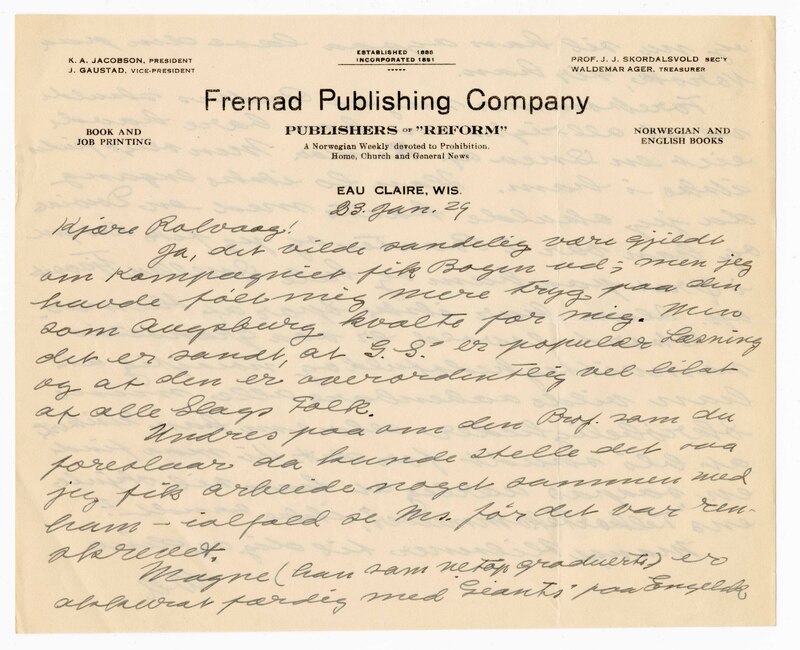 ESTABLISHED 1886
INCORPORATED 1891
K. A. JACOBSON, PRESIDENT
J. GAUSTAD, VICE-PRESIDENT
PROF. J. J. SKORDALSVOLD SEC'Y
WALDEMAR AGER, TREASURER
Fremad Publishing Company
BOOK AND
JOB PRINTING
PUBLISHERS OF "REFORM"
A Norwegian Weekly devoted to Prohibition,
Home, Church and General News
NORWEGIAN AND
ENGLISH BOOKS
EAU CLAIRE, WIS.
23. Jan. 29
Kjære Rolvaag!
Ja, det vilde sandelig være gjildt
om Kompagniet fik Bogen ud; men jeg
havde følt mig mere tryg paa din
som Augsburg kvalte for mig. Men
det er sandt, at "G. S." er populær Læsning
og at den er overordentlig vel likt
af alle Slags Folk.
Undres paa om den Prof. som du
foreslaar da kunde stelle det saa
jeg fik arbeide noget sammen med
ham – ialfald se Ms. før det var ren-
skrevet.
Magne (han som netop graduerte) er
akkurat færdig med "Giants" paa Engelsk